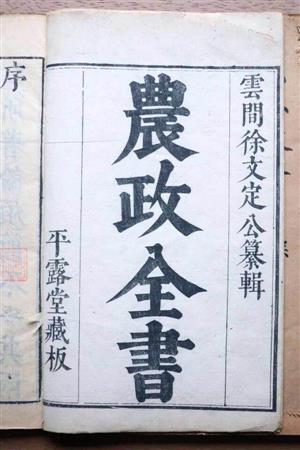 雲間徐文定公纂輯
農政全書
平露堂藏板
序